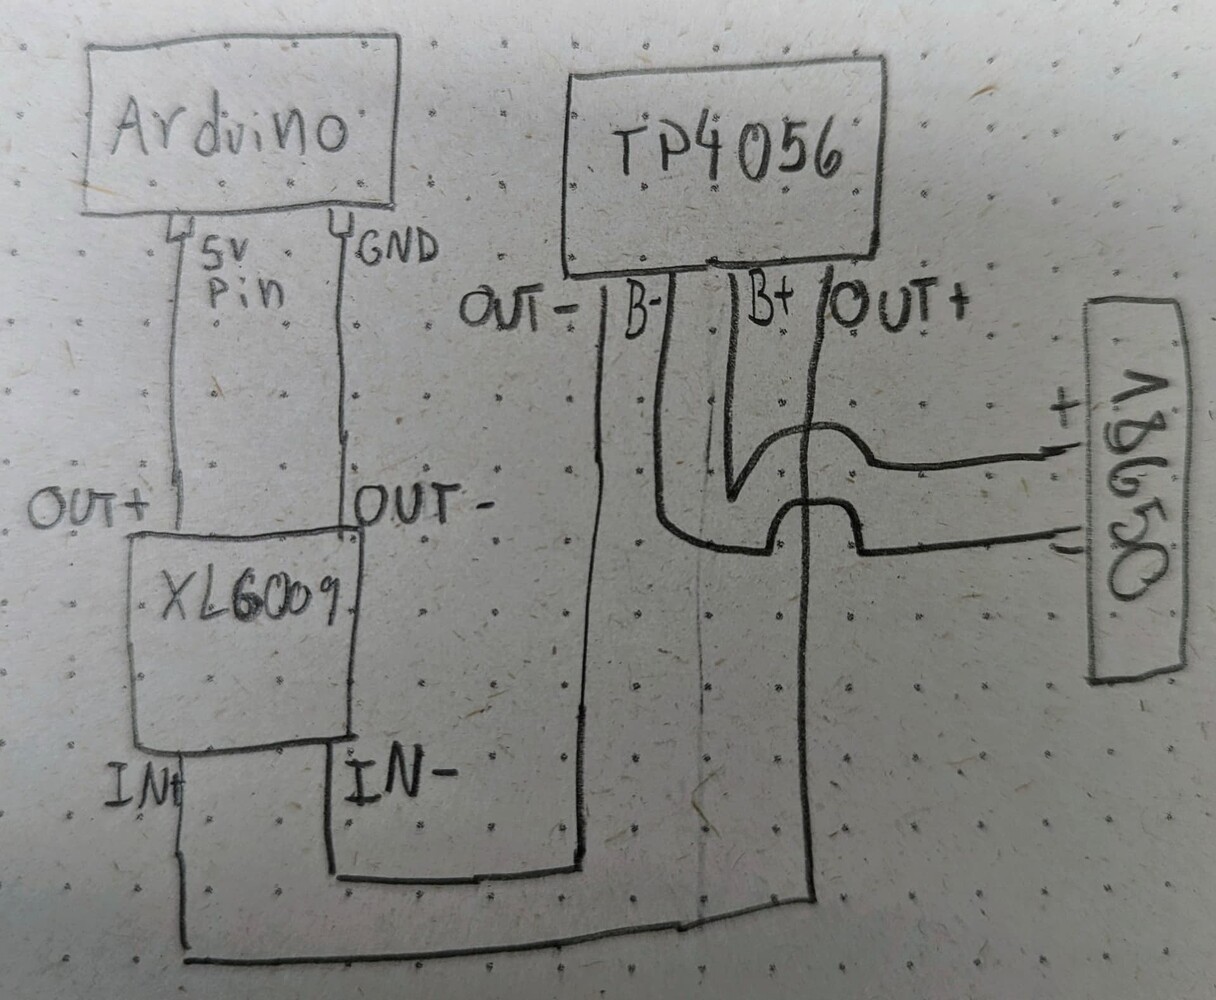 Arduino
5v
Pin
GND
TP4056
OUT-
B-
B+
OUT+
+
18650
-
OUT+
OUT -
XL6009
IN+
IN-